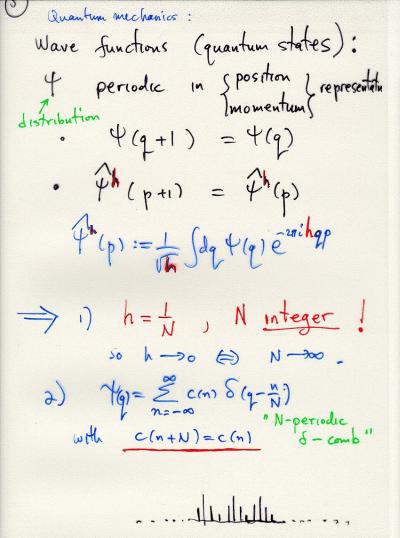 Quantum mechanics :
Wave functions (quantum states) :
Ψ periodic in { position momentum } representatn
distribution
• Ψ(q+1) = Ψ(q)
• Ψ̂ʰ(p+1) = Ψ̂ʰ(p)
Ψ̂ʰ(p) := 1/√h ∫dq Ψ(q) e^{-2πi hqp}
⟹ 1) h = 1/N , N integer !
so h → 0 ⇔ N → ∞ .
2) Ψ(q) = ∑_{n=-∞}^{∞} c(n) δ(q - n/N)
with c(n+N) = c(n)
"N-periodic
δ-comb"